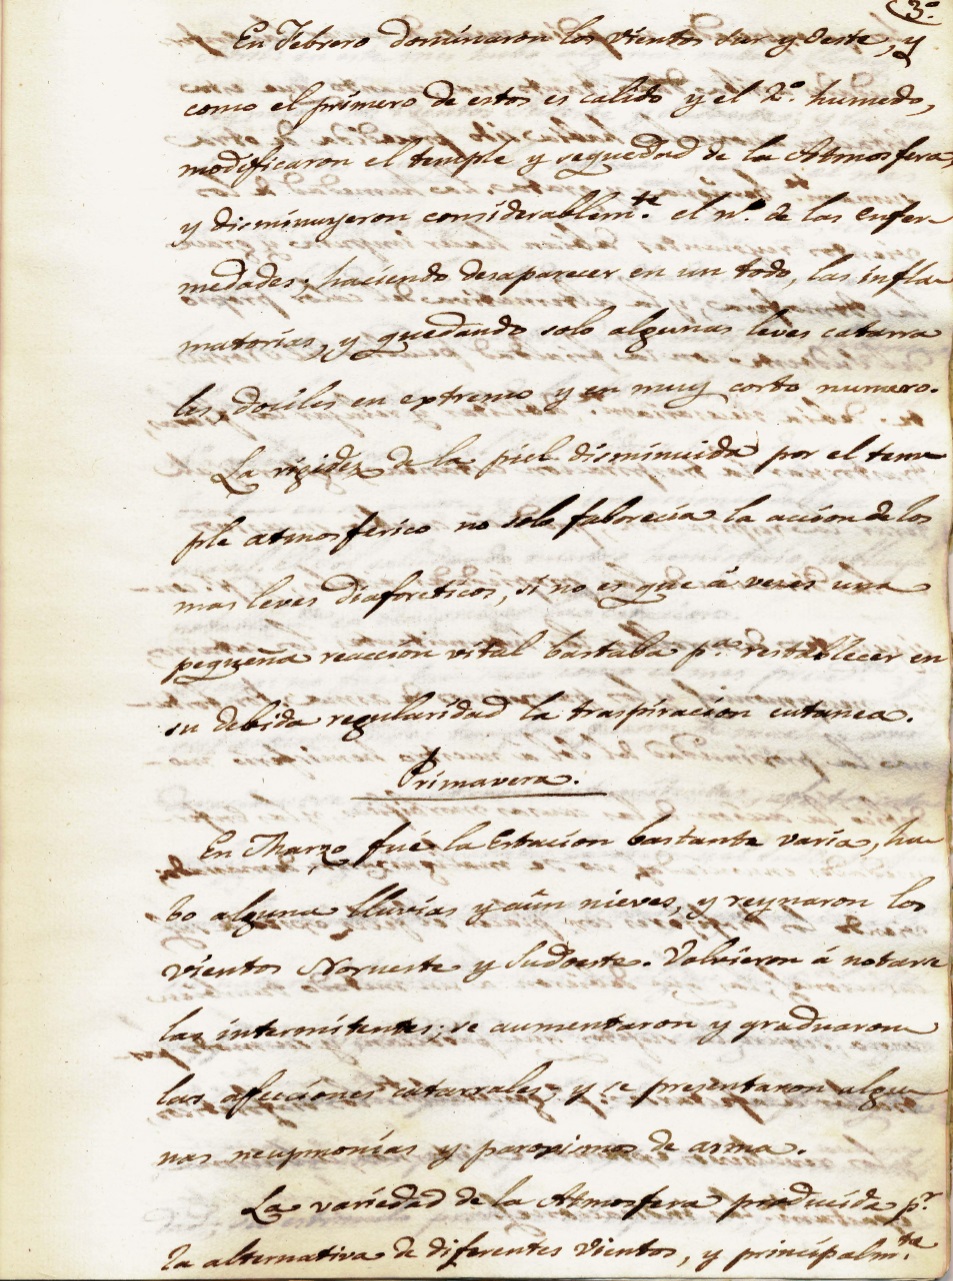 3º
En Febrero dominaron los vientos Sur y Oeste, y
como el primero de estos es calido y el 2.º humedo,
modificaron el temple y sequedad de la Atmosfera,
y disminuyeron considerablem.te el n.º de las enfer
medades; haciendo desaparecer en un todo, las infla
matorias, y quedando solo algunas leves catarra
les, dociles en extremo y en muy corto numero.
La rigidez de la piel disminuida por el tem
ple atmosferico no solo faborecia la accion de los
mas leves diaforeticos, si no es que á veces una
pequeña reaccion vital bastaba p.a restablecer en
su debida regularidad la traspiracion cutanea.
Primavera.
En Marzo fué la Estacion bastante varia, hu
bo alguna lluvias y aún nieves, y reynaron los
vientos Norueste y Sudoeste. Volvieron á notarse
las intermitentes; se aumentaron y graduaron
las afecciones catarrales, y se presentaron algu
nas neupmonías y paroxismos de asma.
La variedad de la Atmosfera producida p.r
la alternativa de diferentes vientos, y principalm.te